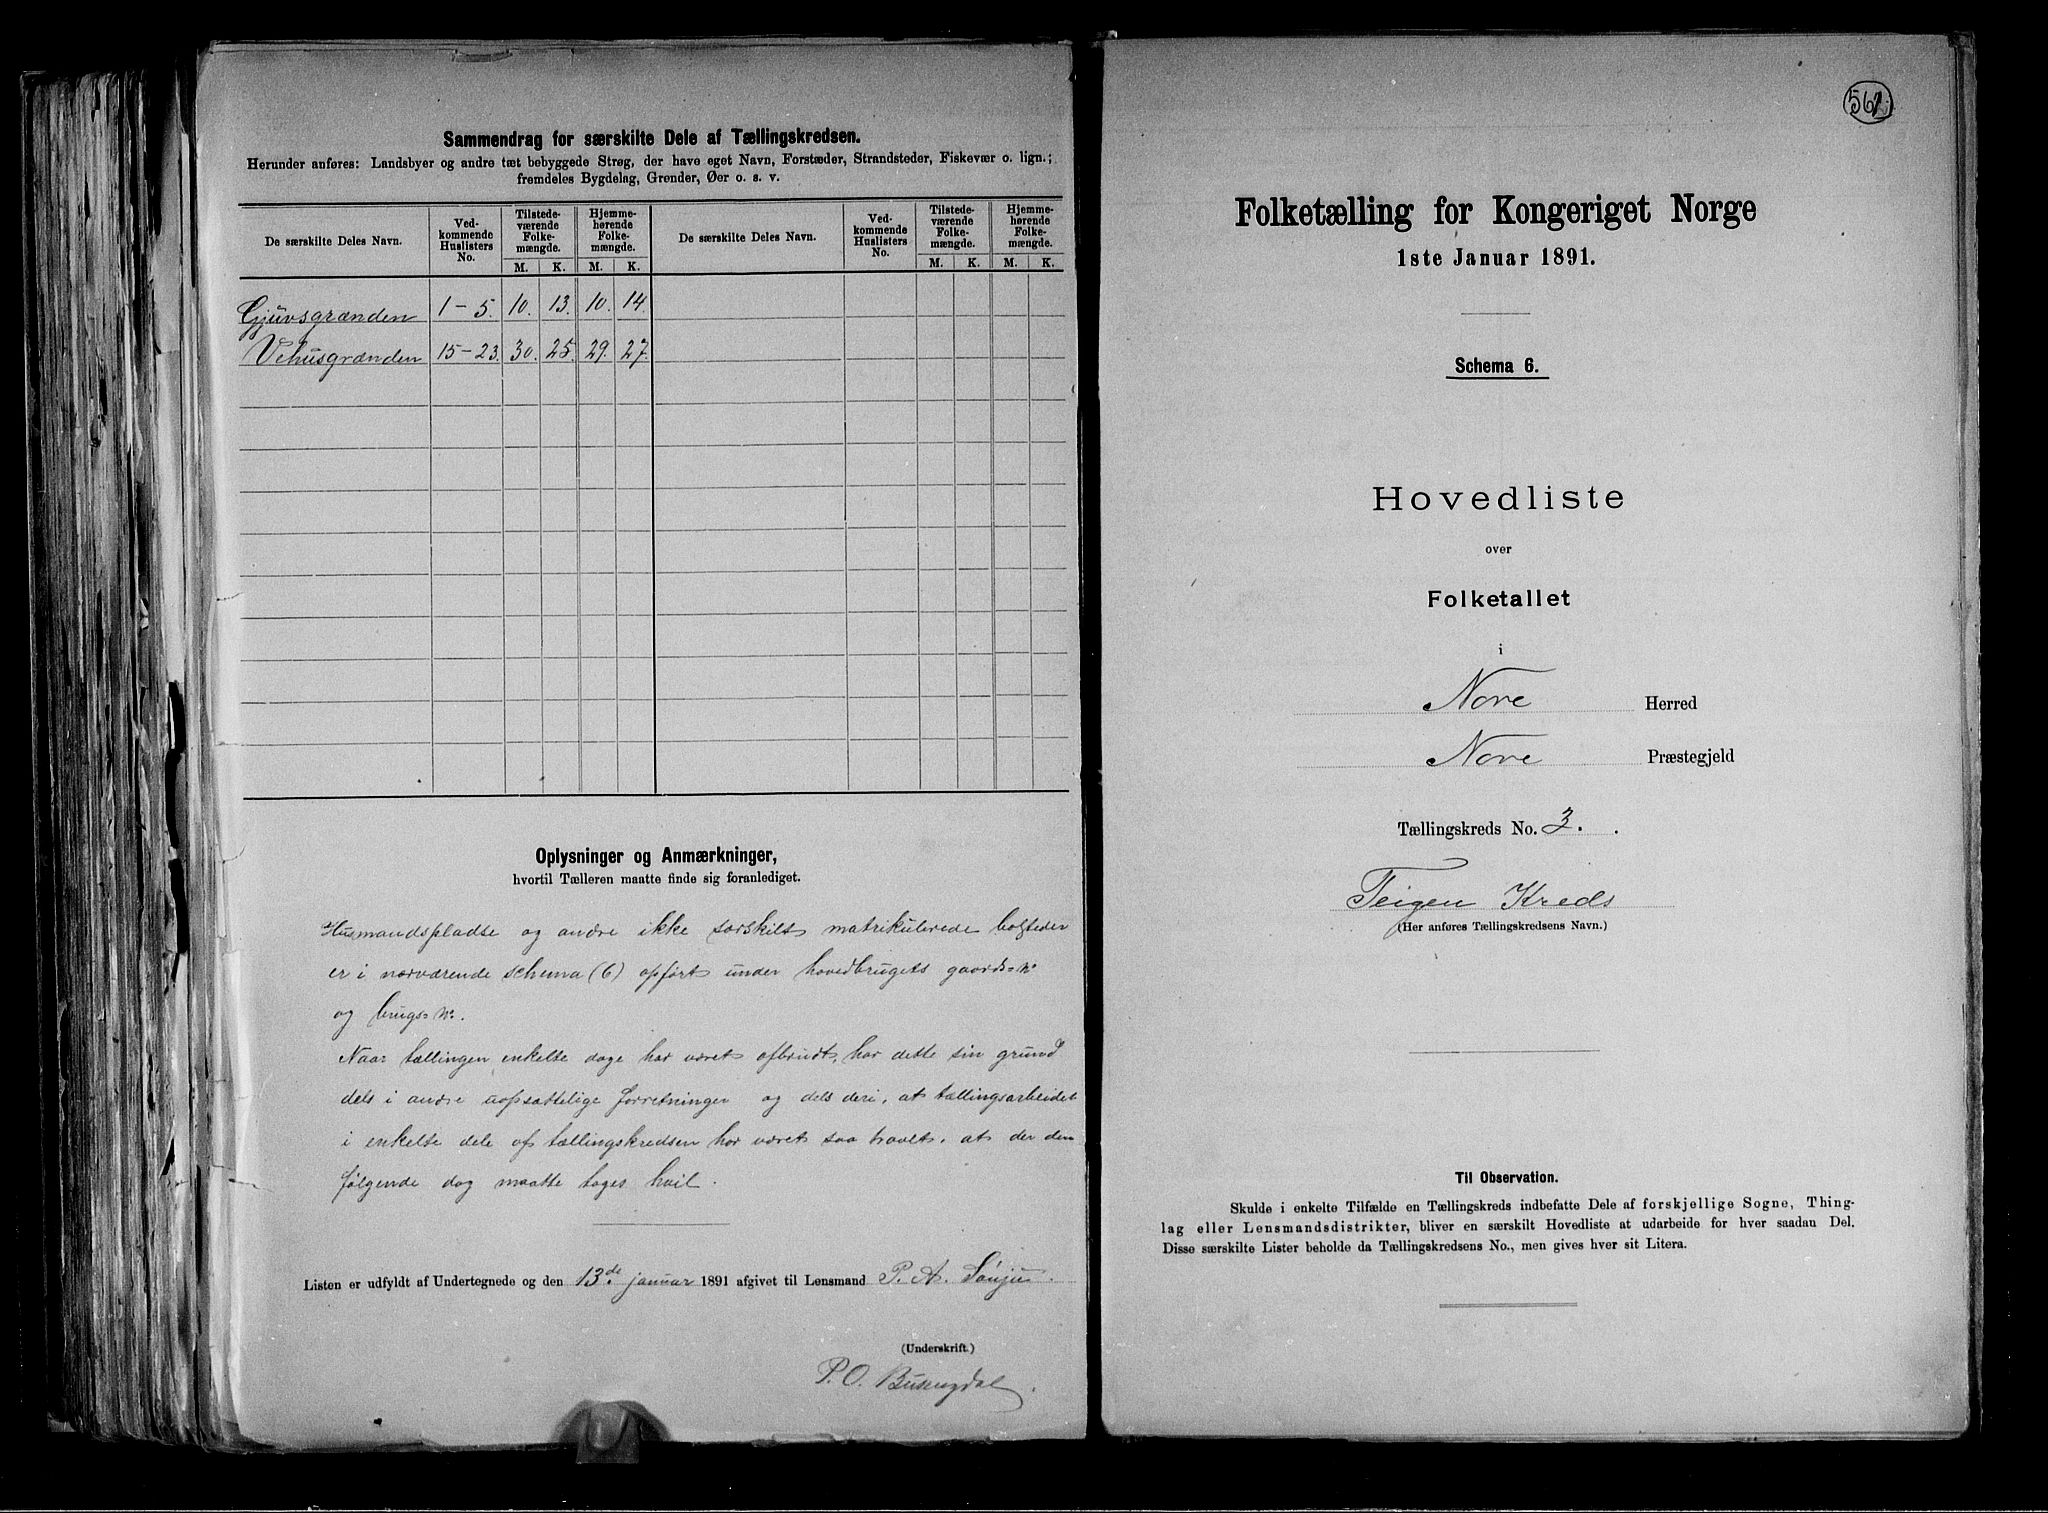 Sammendrag for særskilte Dele af Tællingskredsen.
Herunder anføres: Landsbyer og andre tæt bebyggede Strøg, der have eget Navn, Forstæder, Strandsteder, Fiskevær o. lign.;
fremdeles Bygdelag, Grender, Øer o. s. v.
De særskilte Deles Navn. Ved-kommende Huslisters No. Tilstede-værende Folke-mængde. M. K. Hjemme-hørende Folke-mængde. M. K. De særskilte Deles Navn. Ved-kommende Huslisters No. Tilstede-værende Folke-mængde. M. K. Hjemme-hørende Folke-mængde. M. K.
Gjuvsgrænden 1-5. 10. 13. 10. 14.
Vehusgrænden 15-23. 30. 25. 29. 27.
Oplysninger og Anmærkninger,
hvortil Tælleren maatte finde sig foranlediget.
Husmandspladse og andre ikke særskilt matrikulerede bosteder
er i nærværende schema (6) opført under hovedbrugets gaards=No
og brugs=No.
Naar tællingen enkelte dage har været afbrudt, har dette sin grund
dels i andre uopsættelige forretninger og dels deri, at tællingsarbeidet
i enkelte dele af tællingskredsen har været saa travlt, at der den
følgende dag maatte tages hvil.
Listen er udfyldt af Undertegnede og den 13de januar 1891 afgivet til Lensmand P. A.
(Underskrift.)
P. O. Busengdal.
561
Folketælling for Kongeriget Norge
1ste Januar 1891.
Schema 6.
Hovedliste
over
Folketallet
i
Nore Herred
Nore Præstegjeld
Tællingskreds No. 3.
Teigen Kreds
(Her anføres Tællingskredsens Navn.)
Til Observation.
Skulde i enkelte Tilfælde en Tællingskreds indbefatte Dele af forskjellige Sogne, Thing-
lag eller Lensmandsdistrikter, bliver en særskilt Hovedliste at udarbeide for hver saadan Del.
Disse særskilte Lister beholde da Tællingskredsens No., men gives hver sit Litera.